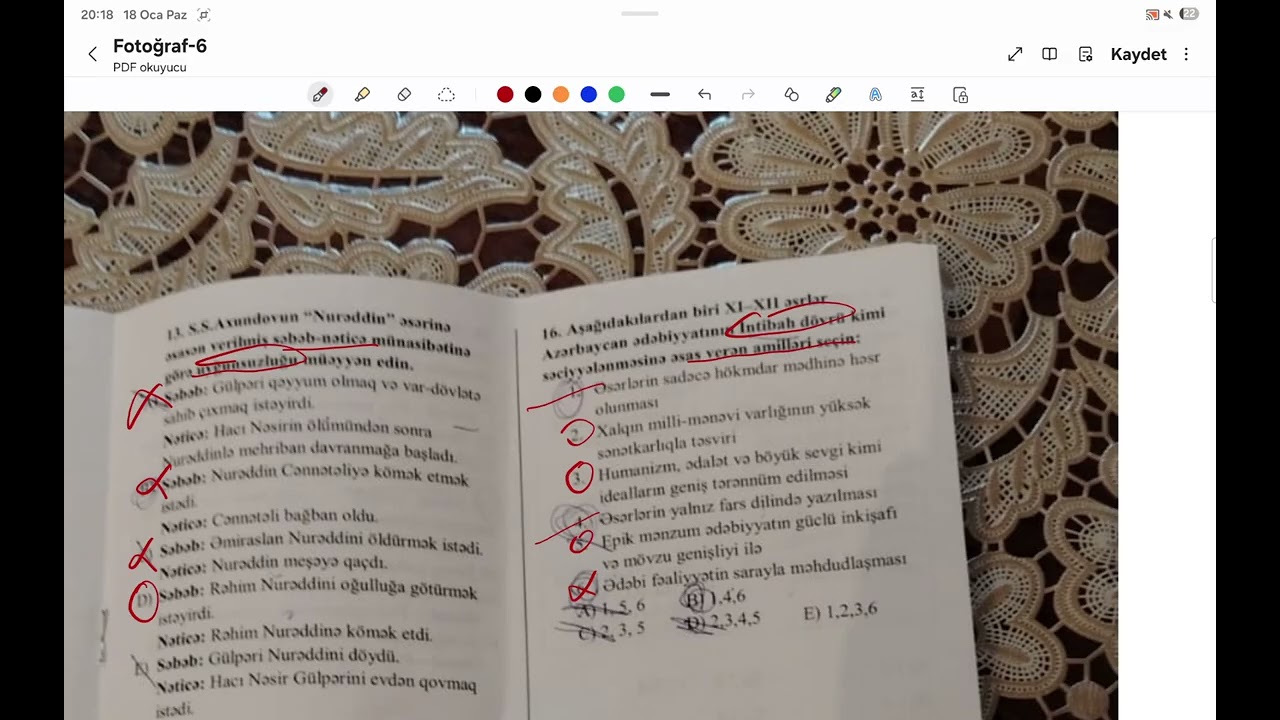 20:18 18 Oca Paz
22
Fotoğraf-6
PDF okuyucu
Kaydet
13. S.S.Axundovun "Nurəddin" əsərinə
əsasən verilmiş səbəb-nəticə münasibətinə
görə uyğunsuzluğu müəyyən edin.
Səbəb: Gülpəri qəyyum olmaq və var-dövlətə
sahib çıxmaq istəyirdi.
Nəticə: Hacı Nəsirin ölümündən sonra
Nurəddinlə mehriban davranmağa başladı.
Səbəb: Nurəddin Cənnətəliyə kömək etmək
istədi.
Nəticə: Cənnətəli bağban oldu.
Səbəb: Əmiraslan Nurəddini öldürmək istədi.
Nəticə: Nurəddin meşəyə qaçdı.
D) Səbəb: Rəhim Nurəddini oğulluğa götürmək
istəyirdi.
Nəticə: Rəhim Nurəddinə kömək etdi.
E) Səbəb: Gülpəri Nurəddini döydü.
Nəticə: Hacı Nəsir Gülpərini evdən qovmaq
istədi.
16. Aşağıdakılardan biri XI-XII əsrlər
Azərbaycan ədəbiyyatının İntibah dövrü kimi
səciyyələnməsinə əsas verən amilləri seçin:
1. Əsərlərin sadəcə hökmdar mədhinə həsr
olunması
2. Xalqın milli-mənəvi varlığının yüksək
sənətkarlıqla təsviri
3. Humanizm, ədalət və böyük sevgi kimi
idealların geniş tərənnüm edilməsi
4. Əsərlərin yalnız fars dilində yazılması
5. Epik mənzum ədəbiyyatın güclü inkişafı
və mövzu genişliyi ilə
Ədəbi fəaliyyətin sarayla məhdudlaşması
A) 1, 5, 6 B) 1,4,6
C) 2, 3, 5 D) 2,3,4,5 E) 1,2,3,6